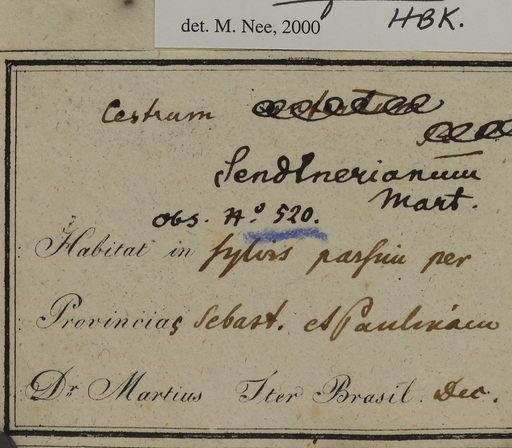 det. M. Nee, 2000 HBK.
Cestrum
Sendtnerianum
Mart.
Obs. No 520.
Habitat in sylvis passim per
Provincias Sebast. et Paulinam
Dr. Martius Iter Brasil. Dec.